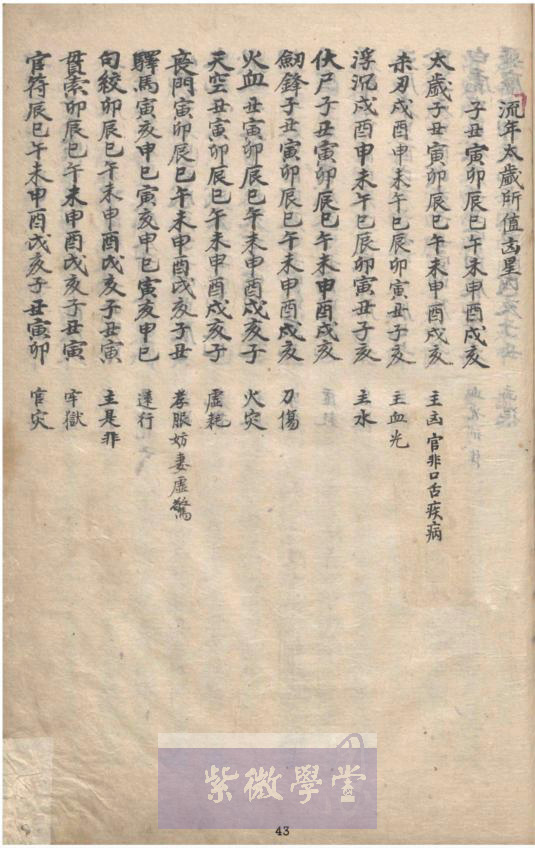 流年太歲所值吉星
子丑寅卯辰巳午未申酉戌亥
太歲子丑寅卯辰巳午未申酉戌亥 主凶官非口舌疾病
未刃戌酉申未午巳辰卯寅丑子亥 主血光
浮沉戌酉申未午巳辰卯寅丑子亥 主水
伏尸子丑寅卯辰巳午未申酉戌亥
劍鋒子丑寅卯辰巳午未申酉戌亥 刀傷
火血丑寅卯辰巳午未申酉戌亥子 火灾
天空丑寅卯辰巳午未申酉戌亥子 虛耗
喪門寅卯辰巳午未申酉戌亥子丑 孝服妨妻虛驚
驛馬寅亥申巳寅亥申巳寅亥申巳 遠行
勾絞卯辰巳午未申酉戌亥子丑寅 主是非
貫索卯辰巳午未申酉戌亥子丑寅 牢獄
官符辰巳午未申酉戌亥子丑寅卯 官灾
紫微學堂
43